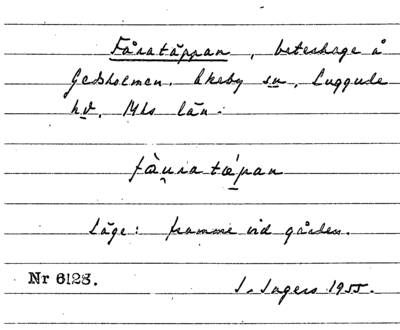 Fåratäppan, beteshage å
Gedsholmen. Ekeby sn, Luggude
hd, Mhs län.
få̀u̯ratǽpan
Läge: framme vid gården.
Nr 6128.
S. Ingers 1955.